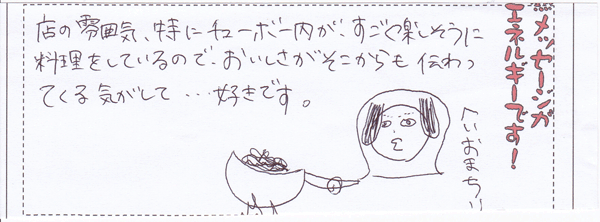 メッセージが
エネルギーです!
店の雰囲気、特にチューボー内が、すごく楽しそうに
料理をしているので、おいしさがそこからも伝わっ
てくる気がして…好きです。
へいおまちぃ